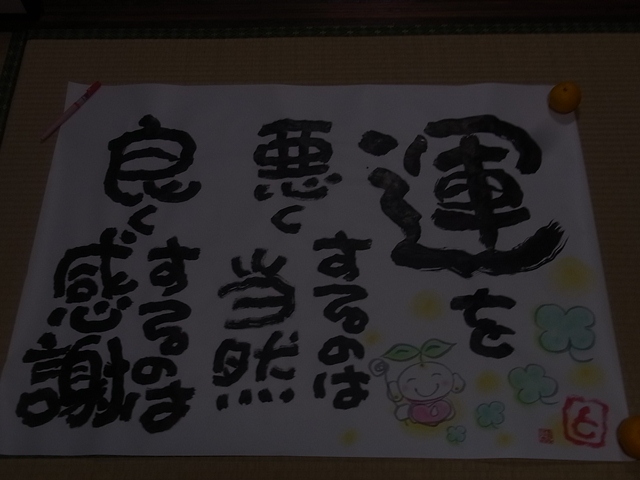 運を
悪く
するのは
当然
良く
するのは
感謝
と